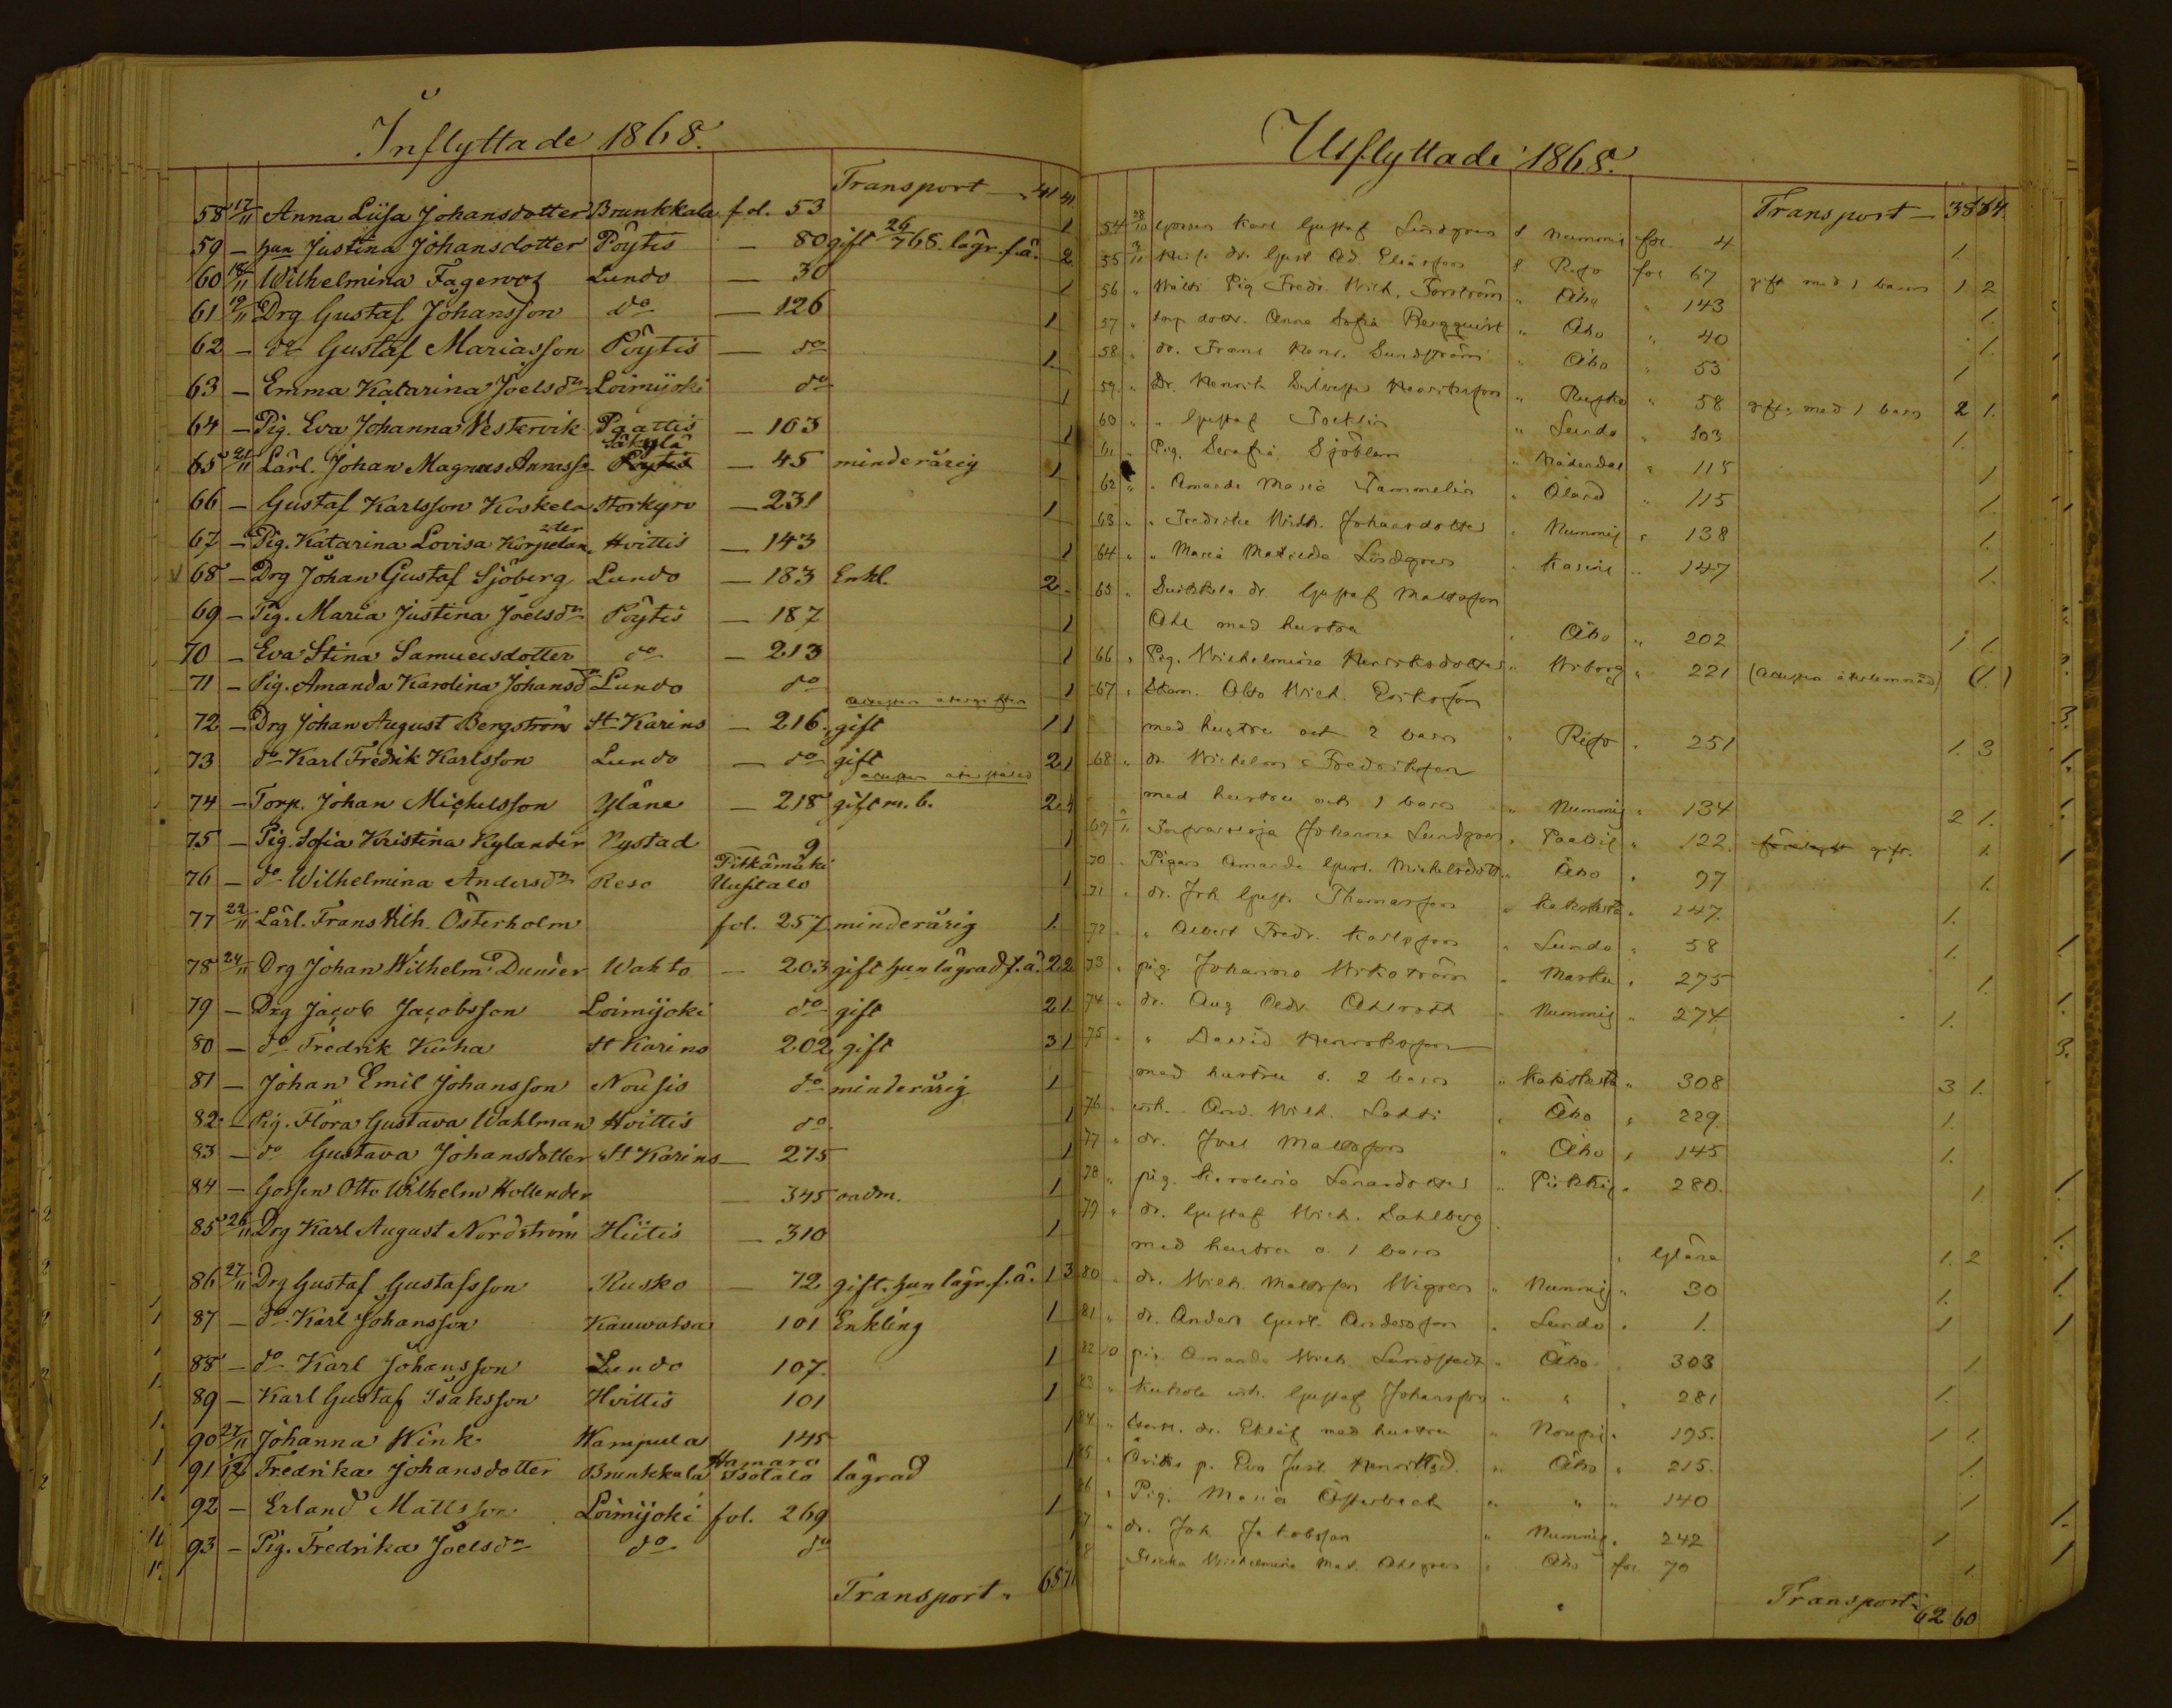 Inflyttade 1868.
Transport — 41 41
58 17/11 Anna Liisa Johansdotter Brunkkala fol. 53 1
59 — han Justina Johansdotter Pöytis — 80 gift 26/7 68. lägr. f. ä. 2
60 18/11 Wilhelmina Fagerroos Lundo — 30 1
61 19/11 Drg Gustaf Johansson do — 126 1
62 — do Gustaf Mariasson Pöytis — do 1
63 — Emma Katarina Joelsdr Loimijoki do 1
64 — Pig. Eva Johanna Westervik Paattis — 103 1
Säkylä
65 21/11 Lärl. Johan Magnus Annass. Pöytis — 45 minderårig 1
66 — Gustaf Karlsson Koskela Storkyro — 231 1
67 — Pig. Katarina Lovisa Korpelander Hvittis — 143 1
68 — Drg Johan Gustaf Sjöberg Lundo — 183 Enkl. 2
69 — Pig. Maria Justina Joelsdr Pöytis — 187 1
70 — Eva Stina Samuelsdotter do — 213 1
71 — Pig. Amanda Karolina Johansdr Lundo do 1
72 — Drg Johan August Bergström St Karins — 216 gift 1 1
73 do Karl Fredrik Karlsson Lundo — do gift 2 1
74 — Torp. Johan Michelsson Yläne — 218 gift m. b. 2 1
75 — Pig. Sofia Kristina Kylander Nystad — 9 1
76 — do Wilhelmina Andersdr Reso Pitkämäki Uusitalo 1
77 22/11 Lärl. Frans Wilh. Österholm fol. 257 minderårig 1
78 24/11 Drg Johan Wilhelm Dunder Wahto — 203 gift han lägrad f. ä. 2 2
79 — Drg Jacob Jacobsson Loimijoki do gift 2 1
80 — do Fredrik Kuha St Karins 202 gift 3 1
81 — Johan Emil Johansson Nousis do minderårig 1
82 — Pig. Flora Gustava Wahlman Hvittis do 1
83 — do Gustava Johansdotter St Karins — 275 1
84 — Gossen Otto Wilhelm Hollender — 345 oadm. 1
85 26/11 Drg Karl August Nordström Hiitis — 310 1
86 27/11 Drg Gustaf Gustafsson Rusko — 72 gift. han lägr. f. ä. 1 3
87 — do Karl Johansson Kauwatsa 101 Enkling 1
88 — do Karl Johansson Lundo 107 1
89 — Karl Gustaf Isaksson Hvittis 101 1
90 27/11 Johanna Wink Wampula 145 1
91 1/12 Fredrika Johansdotter Brunkkala Hamaro Isotalo lägrad 1
92 — Erland Mattsson Loimijoki fol. 269 1
93 — Pig. Fredrika Joelsdr do do
Transport 65 71
Utflyttade 1868.
Transport — 38 34
54 28/10 gossen Karl Gustaf Lindgren Nummis fol. 4 1
55 3/11 dr. Gust. Ad. Eliasson Reso fol 67 gift med 1 barn 1 2
56 Pig Fredr. Wilh. Forström Åbo 143 1.
57 dottr. Anna Sofia Bergqvist Åbo 40 1.
58 dr. Frans Henr. Sundström Åbo 53 1
59. Dr. Henrik Henriksson Rusko 58 gift, med 1 barn 2 1.
60 Gustaf Lundo 103 1.
61 Pig. Serafia Sjöblom Nådendal 115 1
62 Amanda Maria Tammelin Åland 115 1.
63 Fredrika Wilh. Johansdotter Nummis 138 1.
64 Maria Matilda Lindgren Karins 147 1.
65 dr. Gustaf Mattsson
Ahl med hustru Åbo 202 1 1.
66 Pig. Wilhelmina Henriksdotter Wiborg 221 (1)
67 Otto Wilh. Eriksson
med hustru och 2 barn Reso 251 1. 3
68 dr Wilhelm Fredriksson
med hustru och 1 barn Nummis 134 2 1.
69 Johanna Lundgren Paattis 122. gift. 1.
70 Pigan Amanda Gust. Michelsdott. Åbo 97 1.
71 dr. Joh Gust. Thomasson 147 1.
72 Albert Fredr. Karlsson Lundo 58 1.
73 pig. Johanna Wikström Masku 275 1.
74 dr. Aug Ahlroth Nummis 274 1.
75 David Henriksson
med hustru o. 2 barn 308 3 1.
76 inh. And. Wilh. Åbo 229. 1.
77 dr. Joel Mattsson Åbo 145 1.
78 pig. Karolina Lenardsdotter Piikkis 280. 1
79 dr. Gustaf Wilh. Dahlberg
med hustru o. 1 barn Yläne 1. 2
80 dr. Wilh. Mattsson Wigren Nummis 30 1.
81 dr. Anders Gust. Andersson Lundo 1. 1
82 pig. Amanda Wilh. Lundstedt Åbo 303 1
83 inh. Gustaf Johansson 281 1.
84 dr. Eklöf med hustru Nousis 195. 1 1.
85 p. Eva Just. Henriksd. Åbo 215. 1.
86 Pig. Maria Österback 140 1
87 dr. Joh Jakobsson Nummis 242 1
88 Flicka Wilhelmina Mat. Ahlgren Åbo fol. 70 1.
Transport 62 60